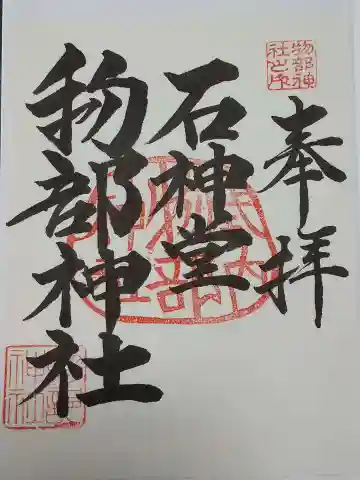 奉拝
石神堂
物部神社
物部神
社之印